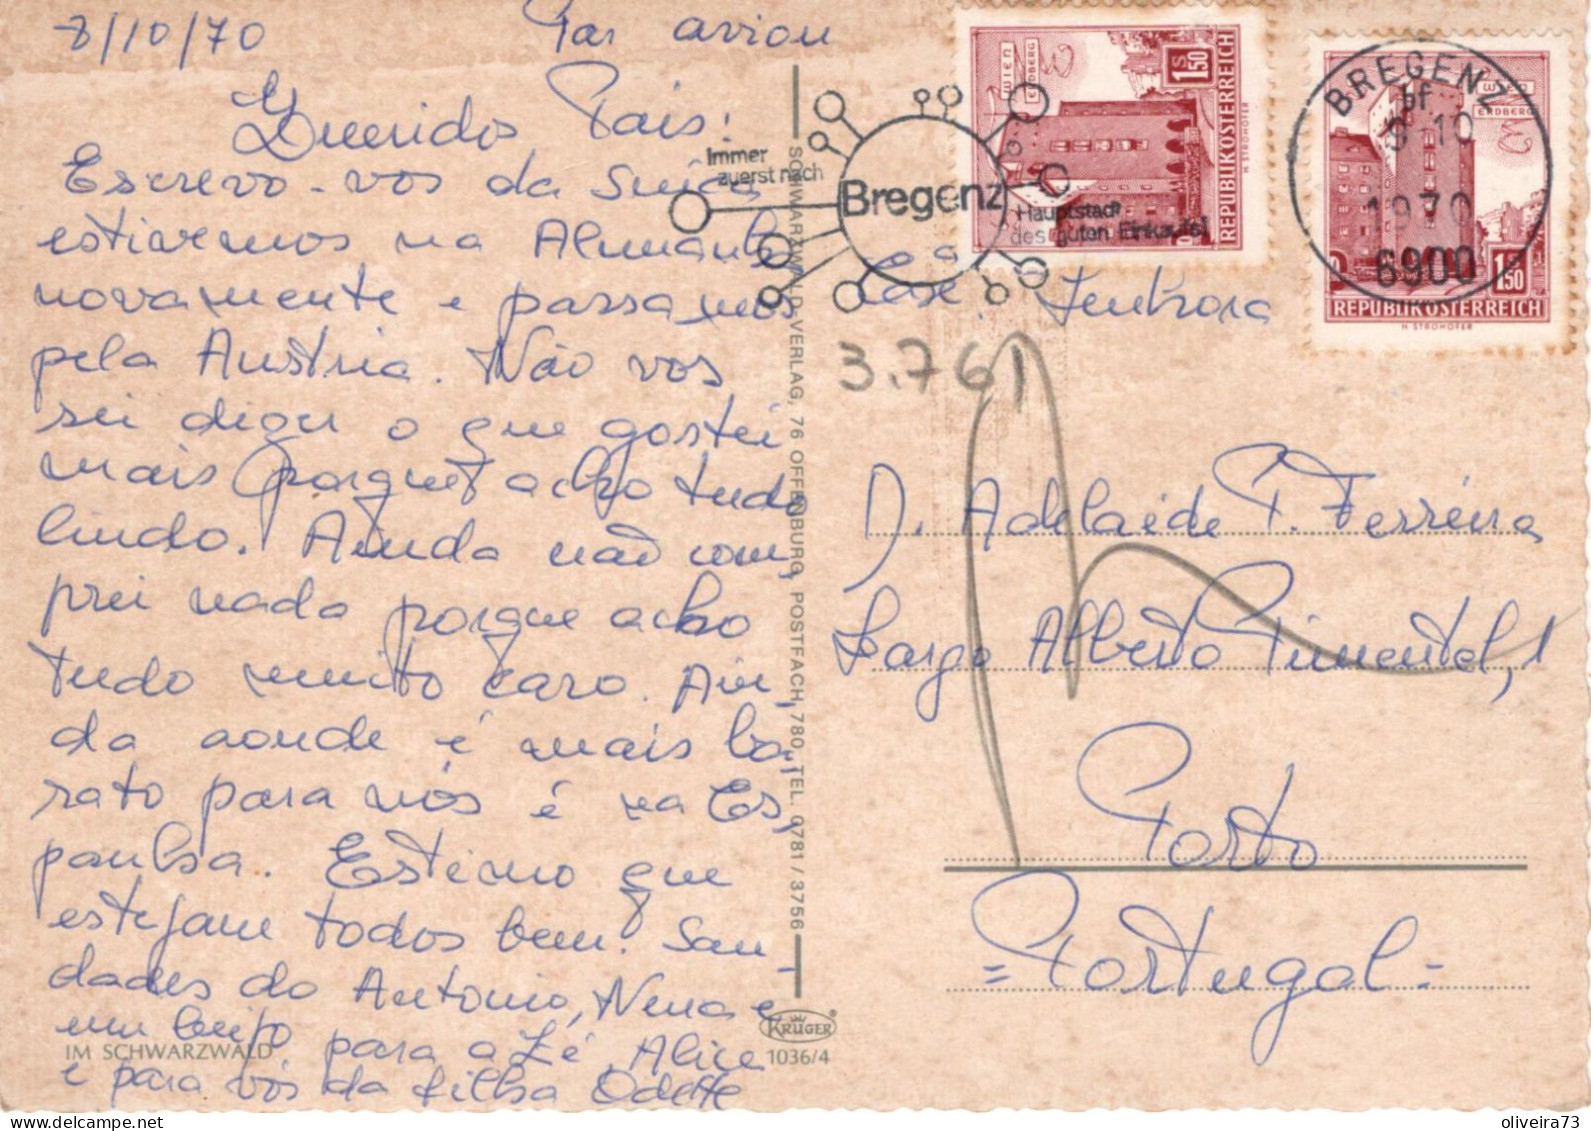 8/10/70
Par avion
Querido Pais:
Escrevo-vos da Suiça
estivemos na Alemanha
novamente e passamos
pela Austria. Não vos
sei dizer o que gostei
mais porque acho tudo
lindo. Ainda não com,
prei nada porque acho
tudo muito caro. Ain,
da aonde é mais ba,
rato para nós é na Es,
panha. Estimo que
estejam todos bem. Sau-
dades do Antonio, Nena e
um beijo para a Zé, Alice
e para vós da filha Odette
IM SCHWARZWALD
SCHWARZWALD-VERLAG, 76 OFFENBURG, POSTFACH 780, TEL. 0781/3756
KRÜGER
1036/4
Immer
zuerst nach
Bregenz
Hauptstadt
des guten Einkaufs!
WIEN
ERDBERG
S
1.50
REPUBLIK ÖSTERREICH
H. STROHOFER
WIEN
ERDBERG
1.50
REPUBLIK ÖSTERREICH
H. STROHOFER
BREGENZ
10
1970
6900
3.761
Exª
Senhora
D. Adelaide P. Ferreira
Largo Alberto Pimentel, 1
Porto
= Portugal =
oliveira73